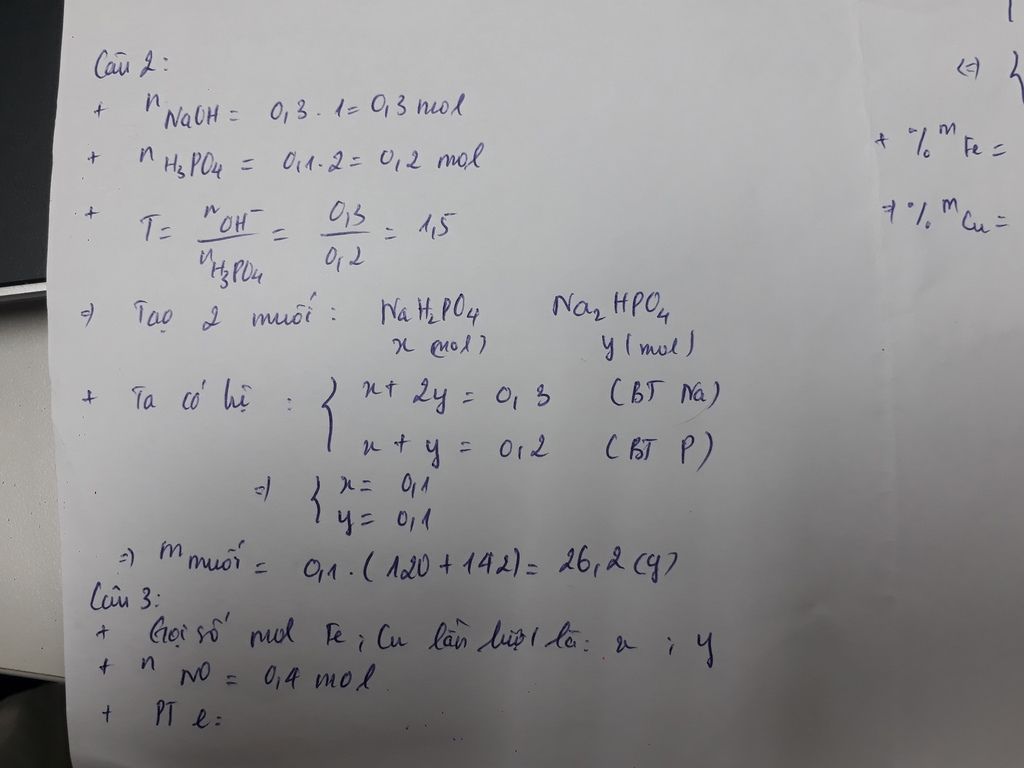 Câu 2:
+ nNaOH = 0,3 . 1 = 0,3 mol
+ nH3PO4 = 0,1 . 2 = 0,2 mol
+ T = nOH⁻ / nH3PO4 = 0,3 / 0,2 = 1,5
=) Tạo 2 muối : NaH2PO4 Na2HPO4
x (mol) y (mol)
+ Ta có hệ : { x + 2y = 0,3 (BT Na)
x + y = 0,2 (BT P)
=) { x = 0,1
y = 0,1
=) m muối = 0,1 . (120 + 142) = 26,2 (g)
Câu 3:
+ Gọi số mol Fe ; Cu lần lượt là : x ; y
+ nNO = 0,4 mol
+ PT e :
(=) {
+ % mFe =
=) % mCu =